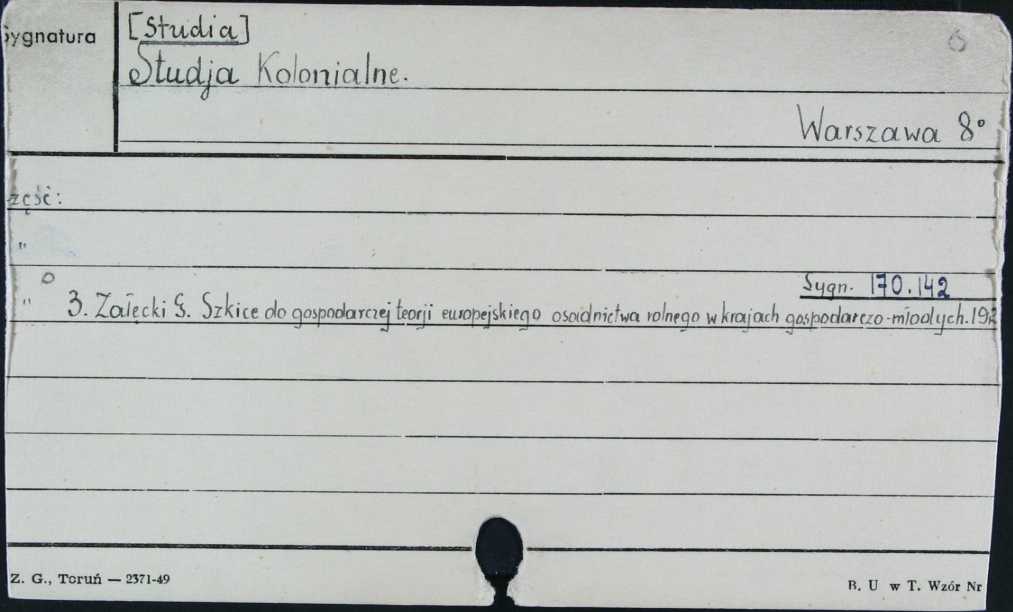 Sygnatura
[Studia]
6
Studja Kolonialne.
Warszawa 8°
zęść:
"
Sygn. 170.142
" 3. Załęcki G. Szkice do gospodarczej teorji europejskiego osadnictwa rolnego w krajach gospodarczo-młodych. 192
Z. G., Toruń — 2371-49
B. U w T. Wzór Nr